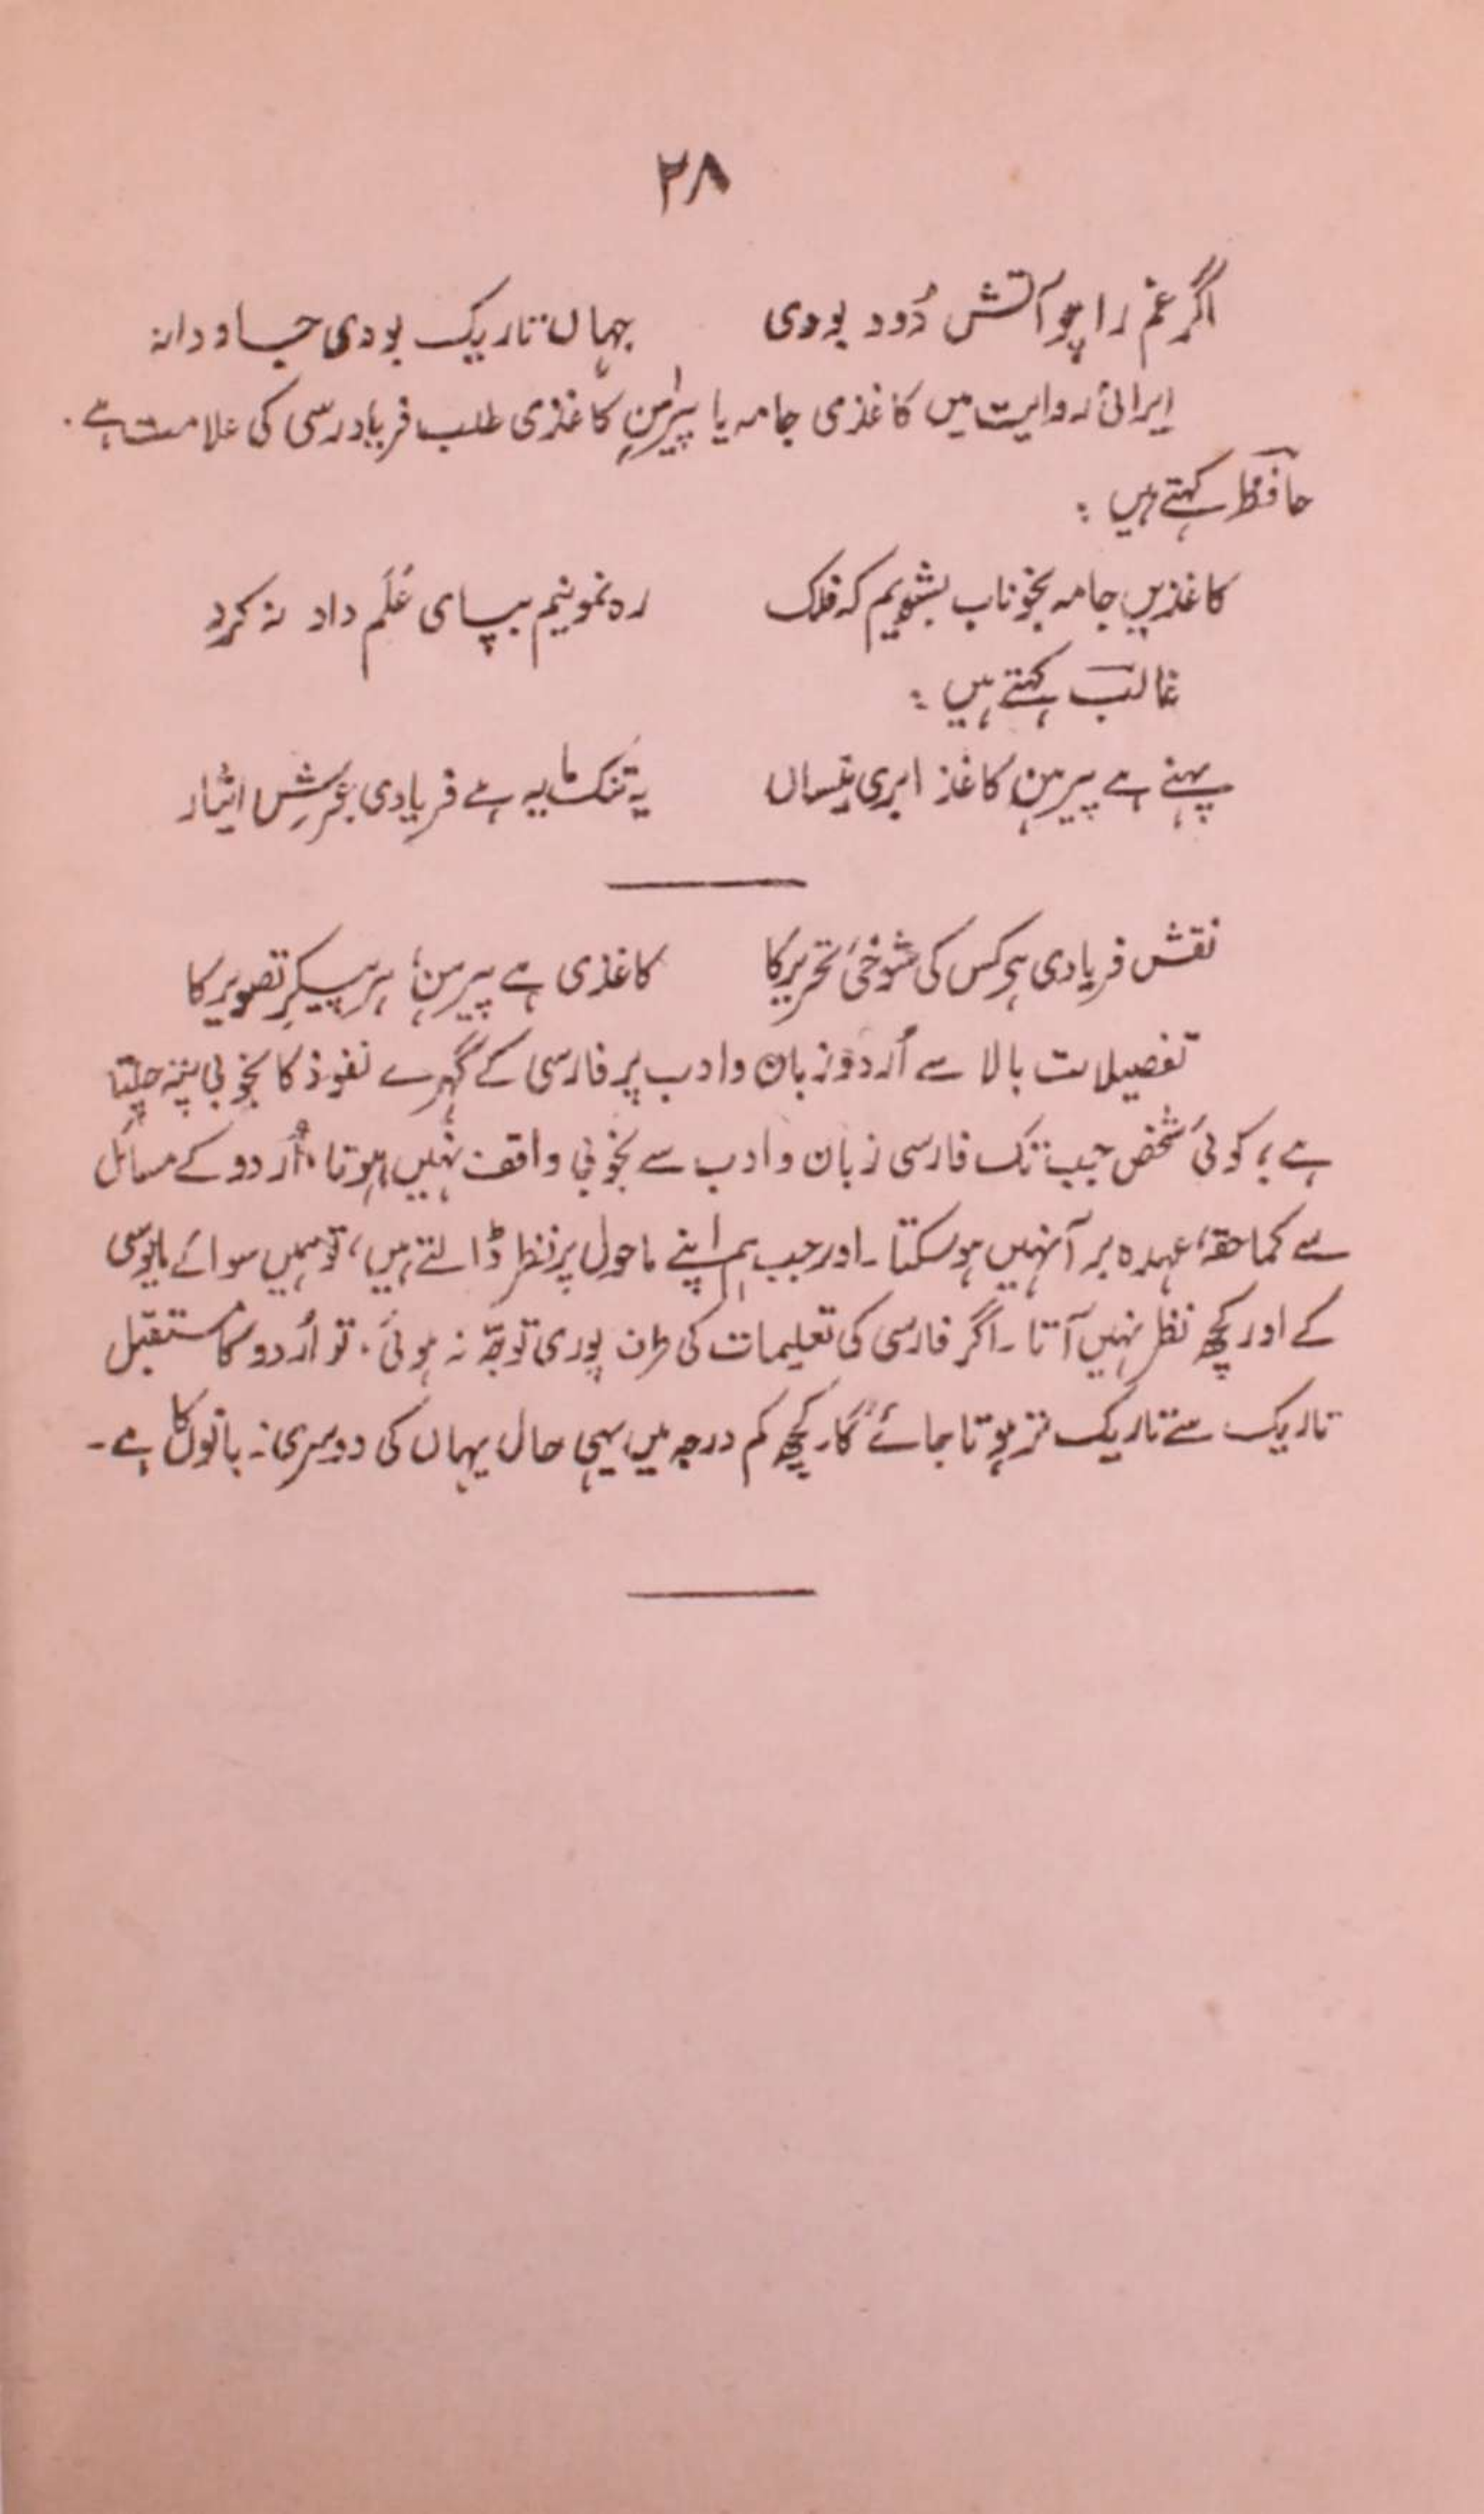 ۲۸
اگر غم را چو آتش دُود بودی جہاں تاریک بودی جاودانہ
ایرانی روایت میں کاغذی جامہ یا پیراہنِ کاغذی طلب فریادرسی کی علامت ہے.
حافظ کہتے ہیں :
کاغذیں جامہ بخوناب بشویم کہ فلک رہ نمونیم بپای عَلَم داد نہ کرد
غالب کہتے ہیں :
پہنے ہے پیرہنِ کاغذ ابری نیساں یہ تنک مایہ ہے فریادی ایثار
نقش فریادی ہے کس کی شوخیٔ تحریر کا کاغذی ہے پیرہن؛ ہر پیکرِ تصویر کا
تفصیلات بالا سے اُردو زبان و ادب پر فارسی کے گہرے نفوذ کا بخوبی پتہ چلتا
ہے؛ کوئی شخص جب تک فارسی زبان و ادب سے بخوبی واقف نہیں ہوتا، اُردو کے مسائل
سے کماحقہ، عہدہ بر آ نہیں ہو سکتا ۔ اور جب ہم اپنے ماحول پر نظر ڈالتے ہیں، تو ہمیں سوائے مایوسی
کے اور کچھ نظر نہیں آتا ۔ اگر فارسی کی تعلیمات کی طرف پوری توجّہ نہ ہوئی، تو اُردو کا مستقبل
تاریک سے تاریک تر ہوتا جائے گا۔ کچھ کم درجہ میں یہی حال یہاں کی دوسری زبانوں کا ہے ۔